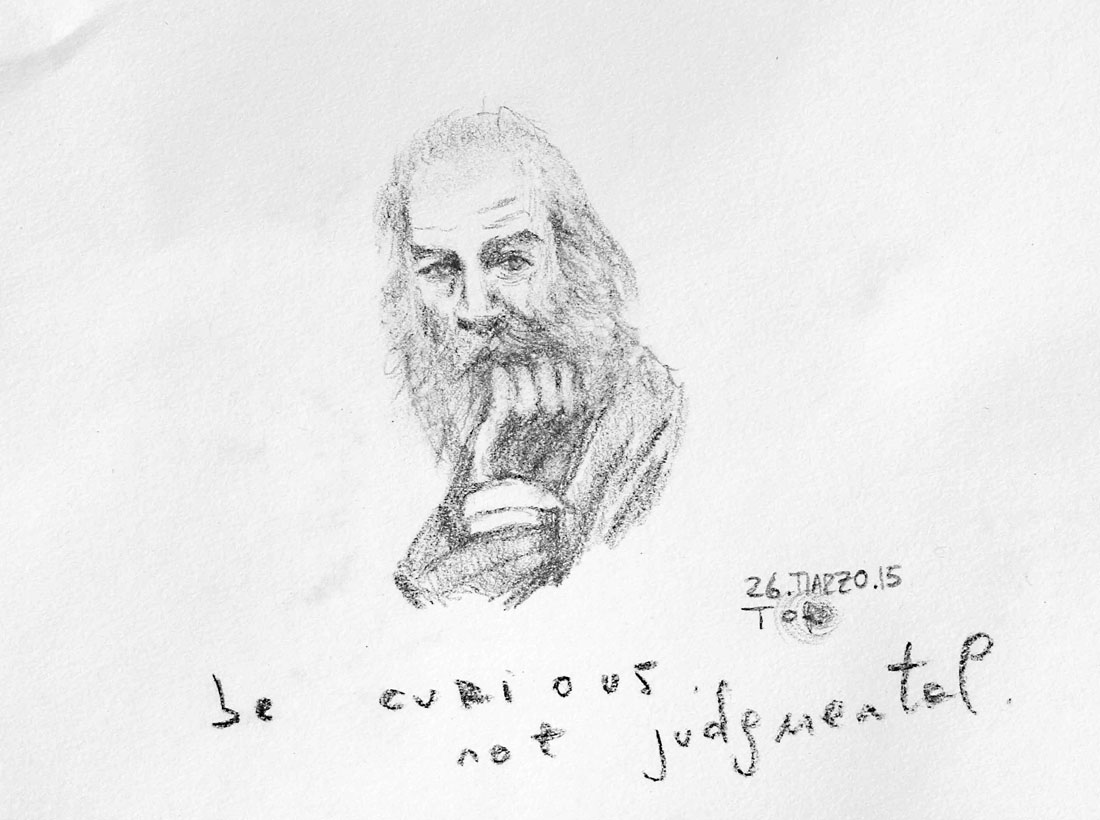 26.MARZO.15
be curious.
not judgmental.